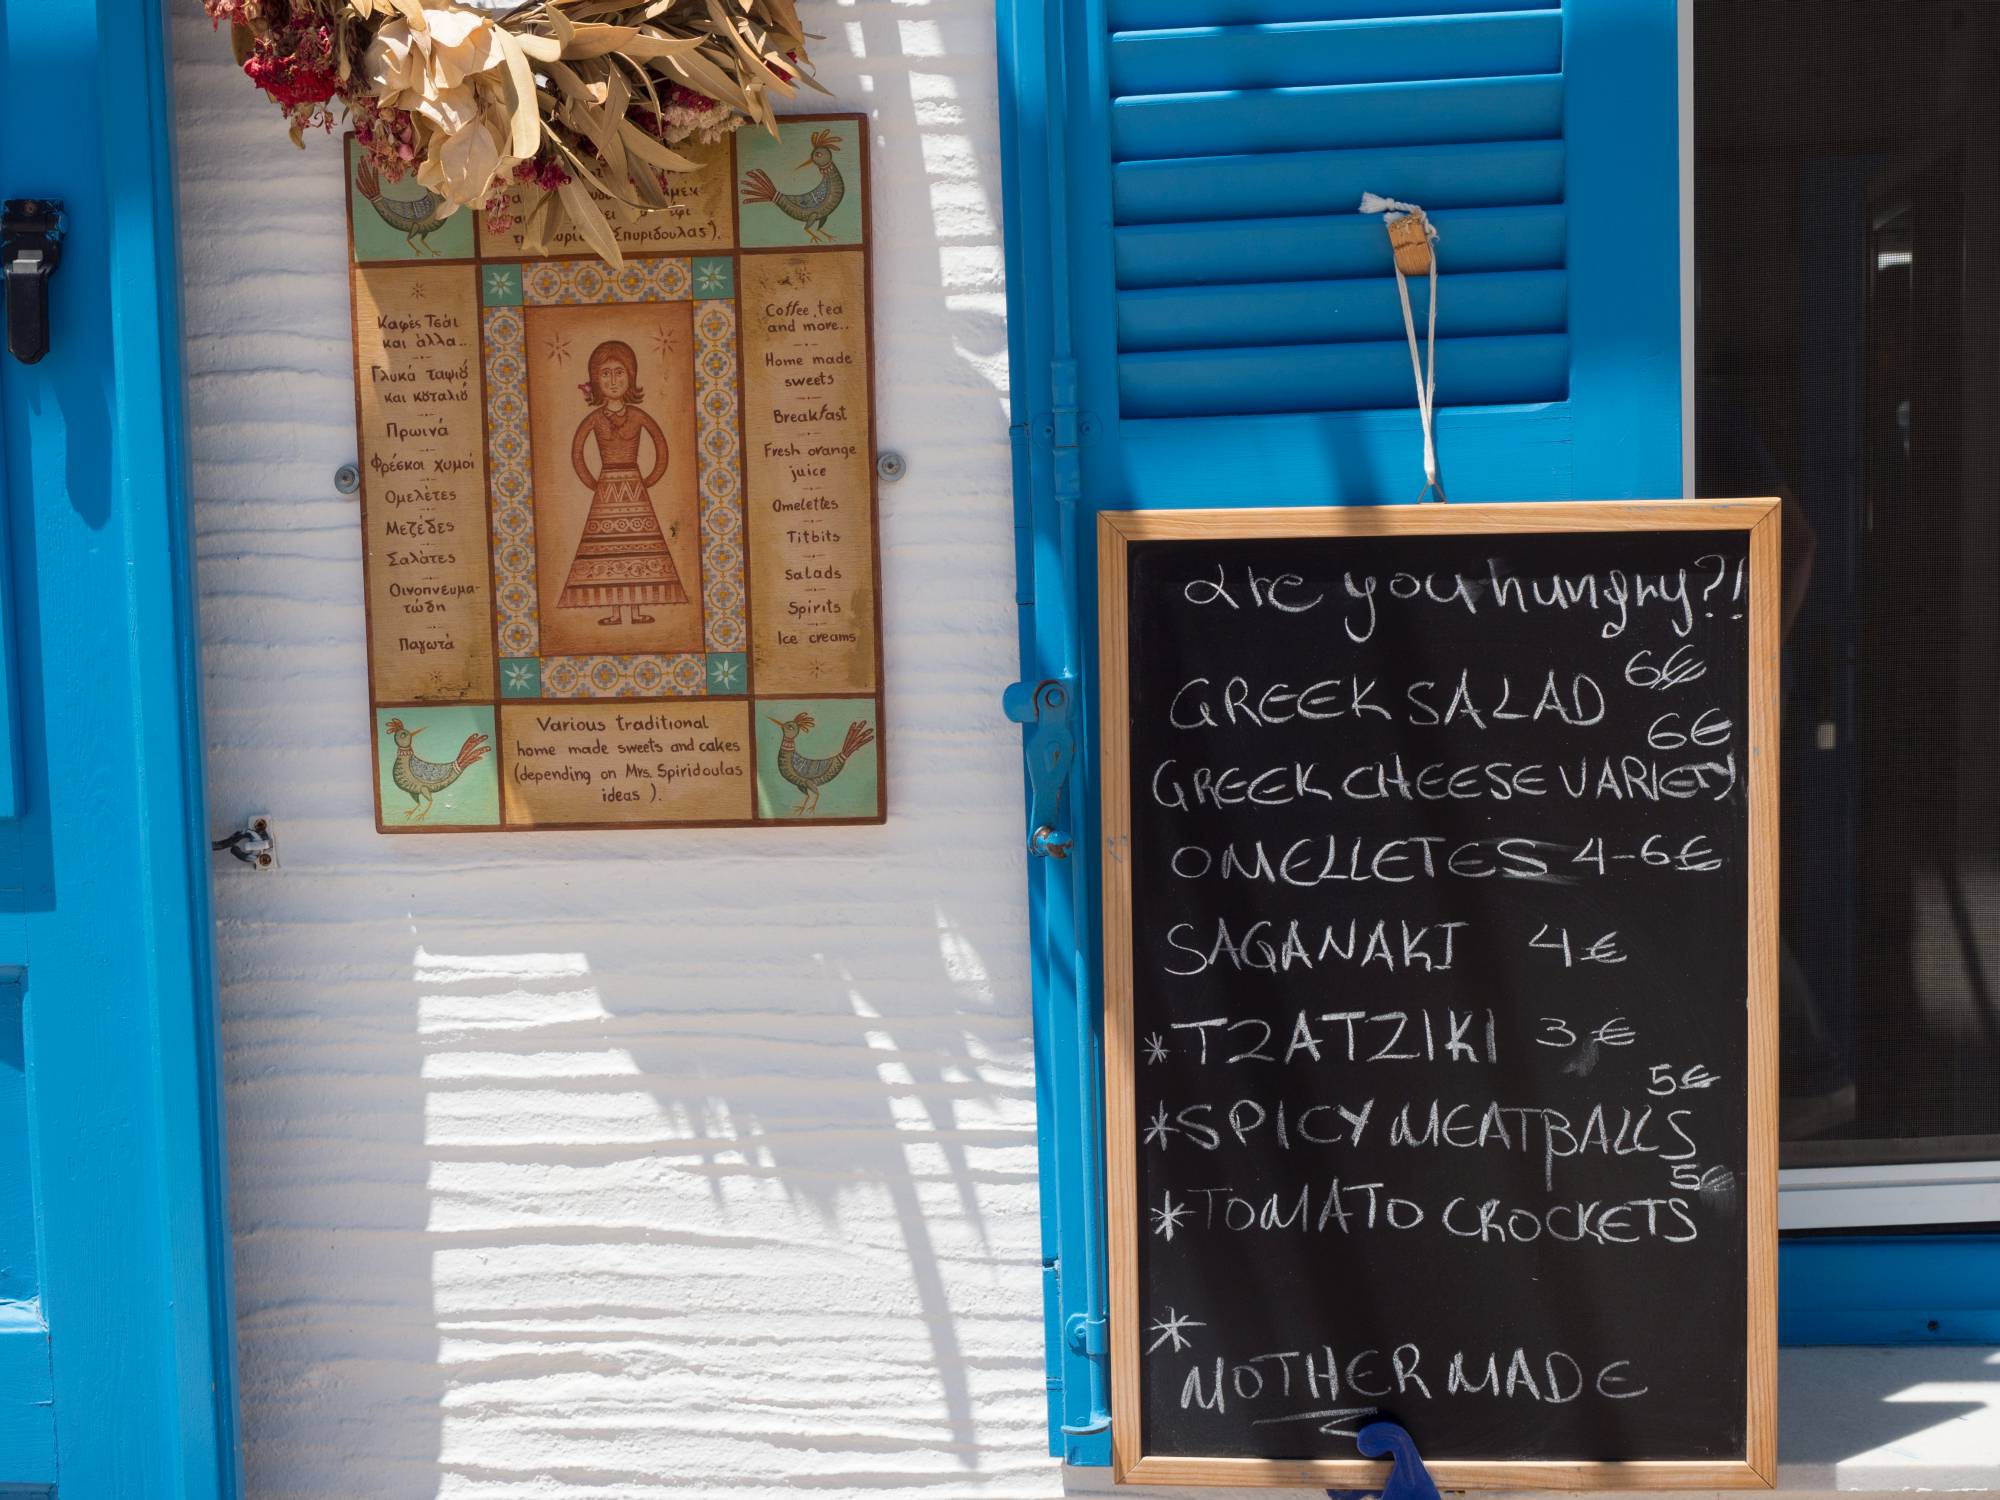 (Σπυριδούλας).
Καφές Τσάι
και άλλα..
Γλυκά ταψιού
και κουταλιού
Πρωινά
Φρέσκοι χυμοί
Ομελέτες
Μεζέδες
Σαλάτες
Οινοπνευμα-
τώδη
Παγωτά
Coffee, tea
and more..
Home made
sweets
Breakfast
Fresh orange
juice
Omelettes
Titbits
Salads
Spirits
Ice creams
Various traditional
home made sweets and cakes
(depending on Mrs. Spiridoulas
ideas ).
Are you hungry?!
GREEK SALAD 6€
GREEK CHEESE VARIETY 6€
OMELLETES 4-6€
SAGANAKI 4€
*TZATZIKI 3€
*SPICY MEATBALLS 5€
*TOMATO CROCKETS 5€
*
MOTHER MADE